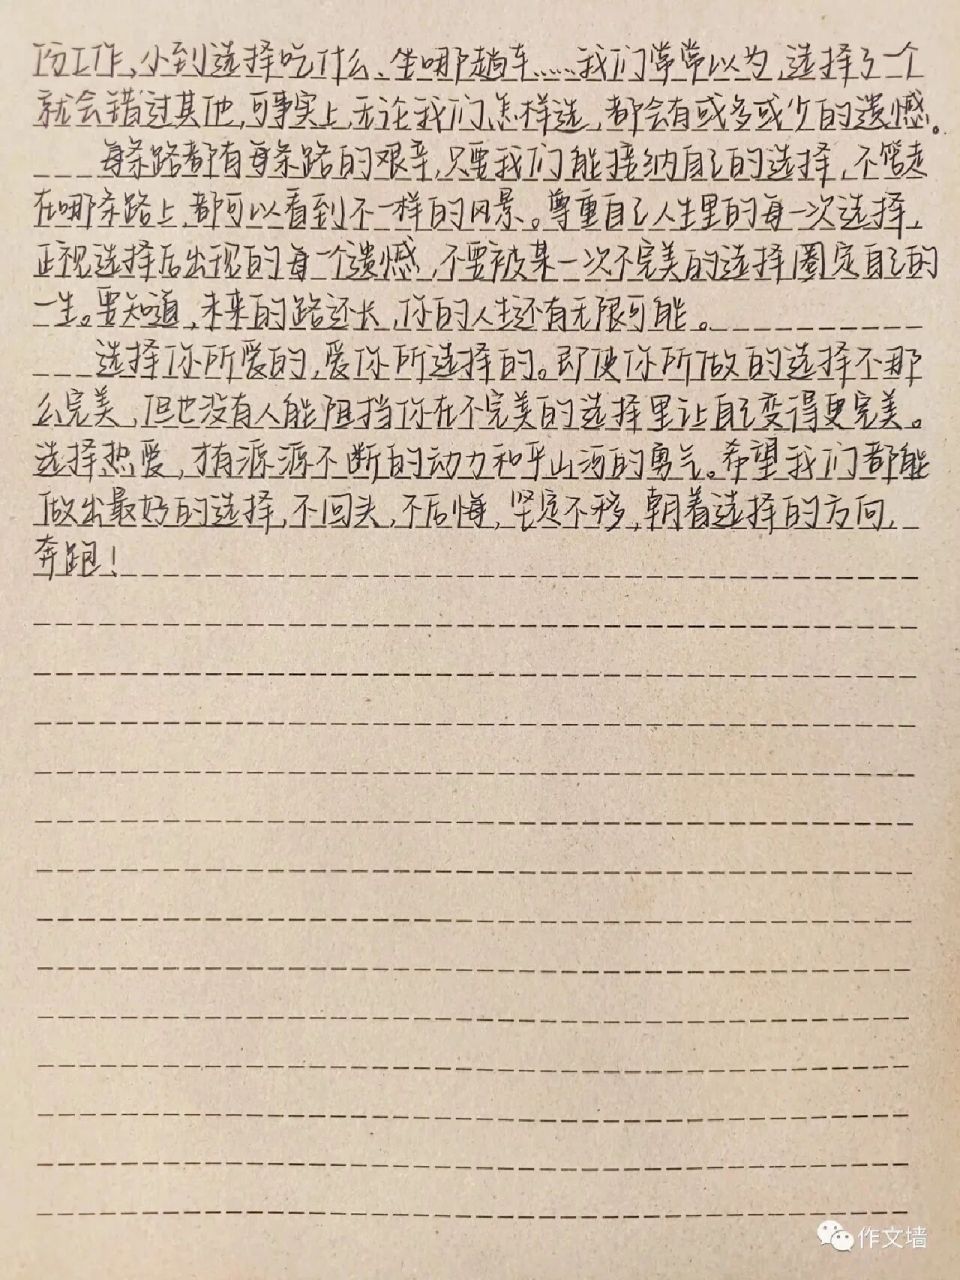 份工作，小到选择吃什么、坐哪趟车……我们常常以为，选择了一个
就会错过其他，可事实上，无论我们怎样选，都会有或多或少的遗憾。
每条路都有每条路的艰辛，只要我们能接纳自己的选择，不管走
在哪条路上，都可以看到不一样的风景。尊重自己人生里的每一次选择，
正视选择后出现的每一个遗憾，不要被某一次不完美的选择圈定自己的
一生。要知道，未来的路还长，你的人生还有无限可能。
选择你所爱的，爱你所选择的。即使你所做的选择不那
么完美，但也没有人能阻挡你在不完美的选择里让自己变得更完美。
选择热爱，才有源源不断的动力和平山河的勇气。希望我们都能
做出最好的选择，不回头，不后悔，坚定不移，朝着选择的方向，
奔跑！
作文墙